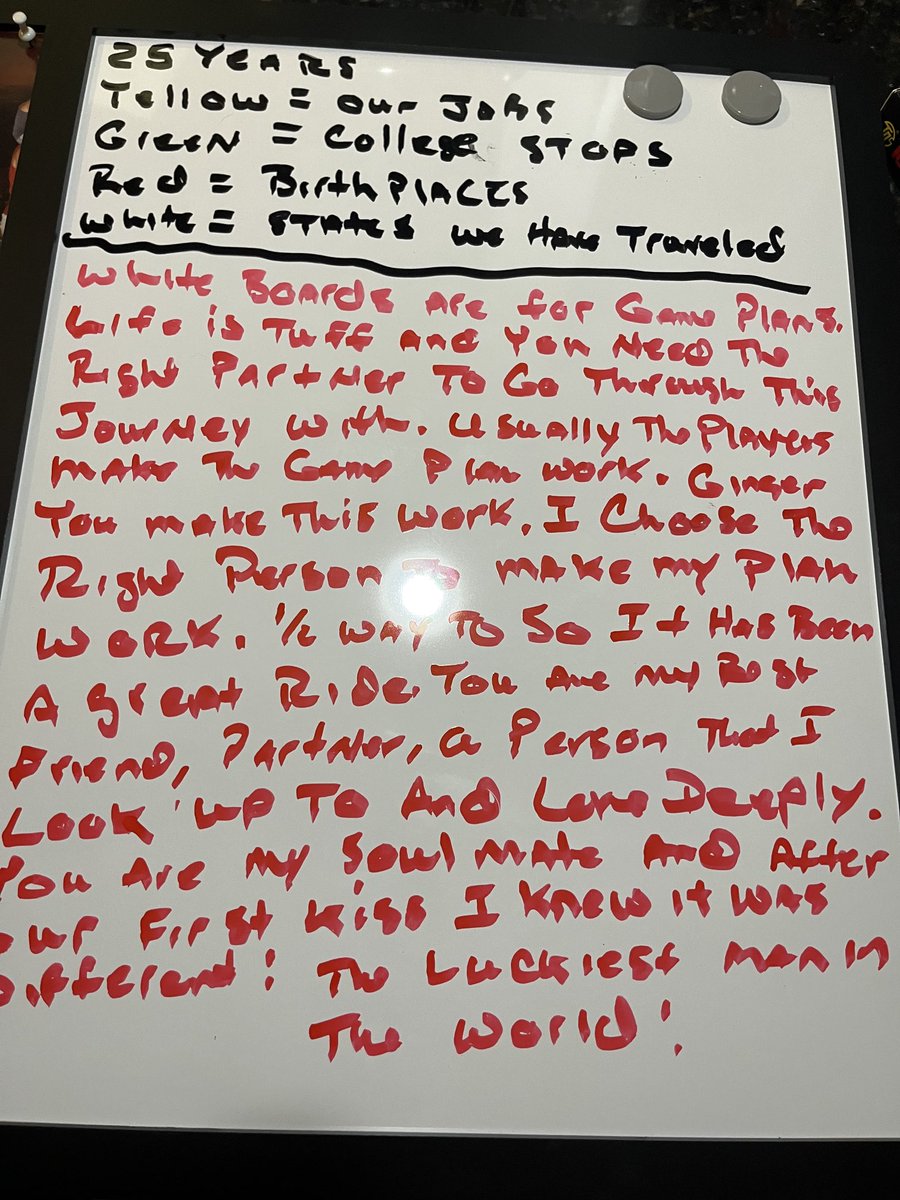 25 YEARS
Yellow = our Jobs
Green = College STOPS
Red = BirthPlACES
White = STATES we Have Traveled
White Boards Are for Game Plans.
Life is Tuff and You Need The
Right Partner To Go Through This
Journey with. Usually The Players
make The Game Plan work. Ginger
You make This work. I Choose The
Right Person To make my Plan
work. 1/2 way To 50 It Has Been
A great Ride. You Are my Best
Friend, Partner, a Person That I
Look up To And Love Deeply.
You Are my Soul mate And After
our First kiss I knew it was
Different! The Luckiest man in
The World!